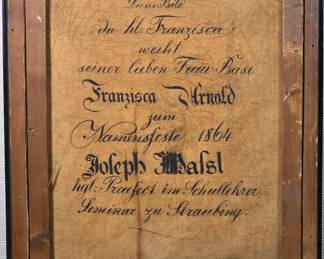 Dieses Bild
da hl: Franzisca
weiht
seiner lieben Frau Base
Franzisca Arnold
zum
Namensfeste 1864
Joseph Massl
kgl: Praefect im Schullehrer
Seminar zu Straubing.